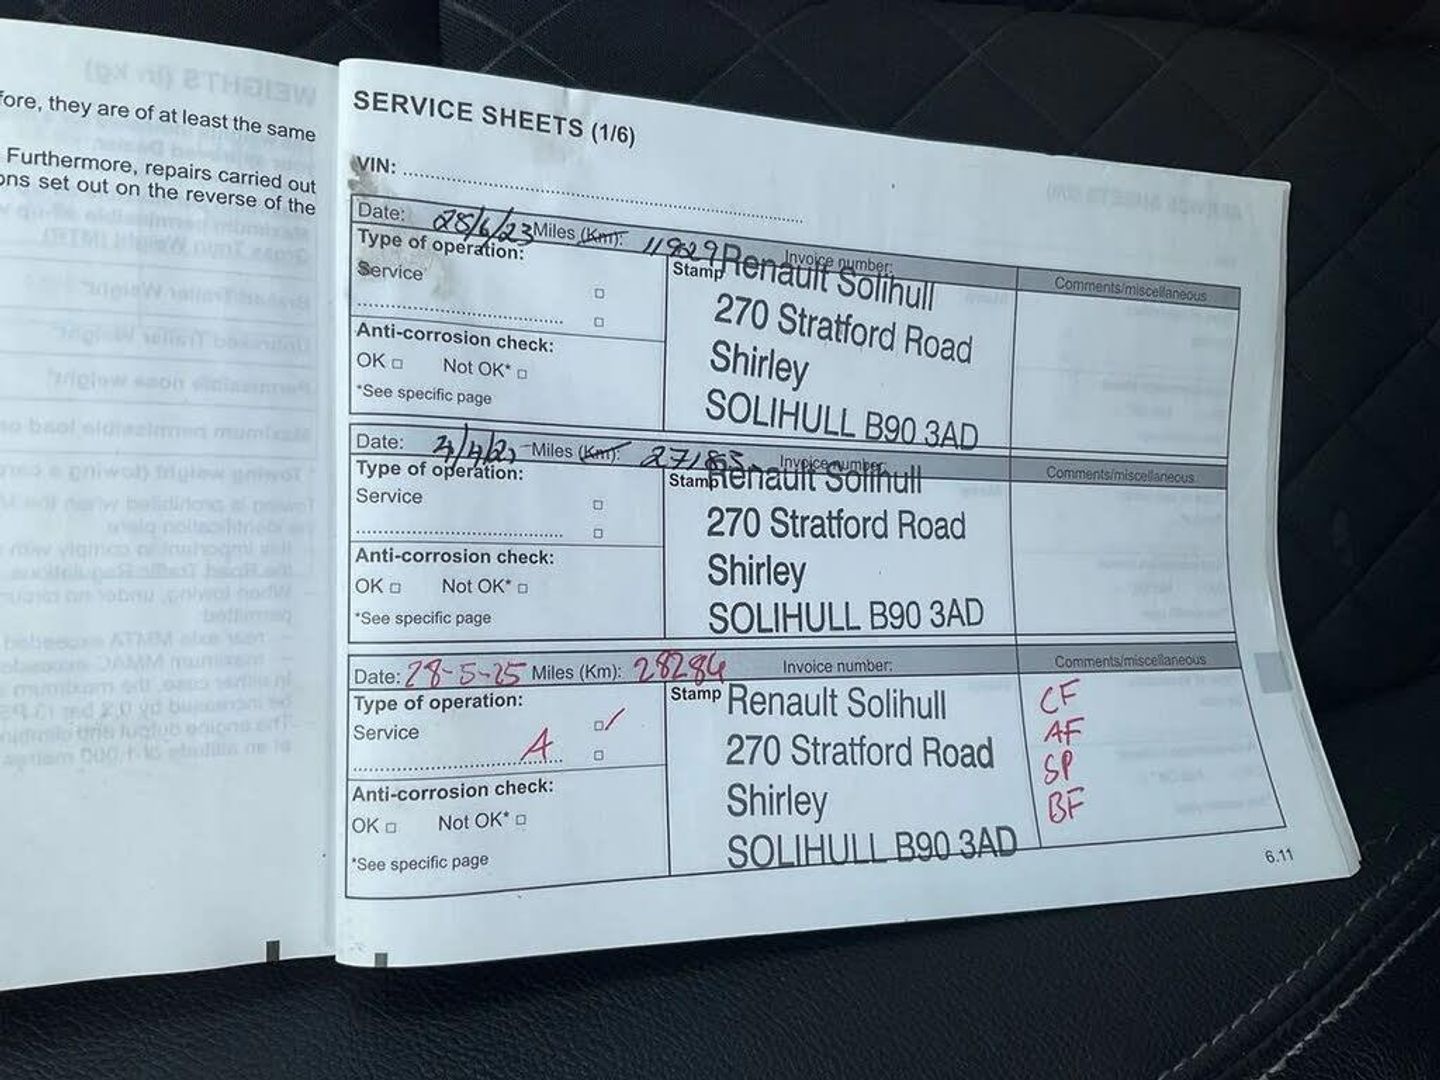 fore, they are of at least the same
Furthermore, repairs carried out
ons set out on the reverse of the
SERVICE SHEETS (1/6)
VIN:
Date: 28/6/23 Miles (Km): 11929 Invoice number:
Comments/miscellaneous
Type of operation:
Service
Stamp Renault Solihull
270 Stratford Road
Shirley
SOLIHULL B90 3AD
Anti-corrosion check:
OK □ Not OK* □
*See specific page
Date: Miles (Km): 27185 Invoice number:
Comments/miscellaneous
Type of operation:
Service
Stamp Renault Solihull
270 Stratford Road
Shirley
SOLIHULL B90 3AD
Anti-corrosion check:
OK □ Not OK* □
*See specific page
Date: 28-5-25 Miles (Km): 28284 Invoice number:
Comments/miscellaneous
Type of operation:
Service
A
Stamp Renault Solihull
270 Stratford Road
Shirley
SOLIHULL B90 3AD
CF
AF
SP
BF
Anti-corrosion check:
OK □ Not OK* □
*See specific page
6.11